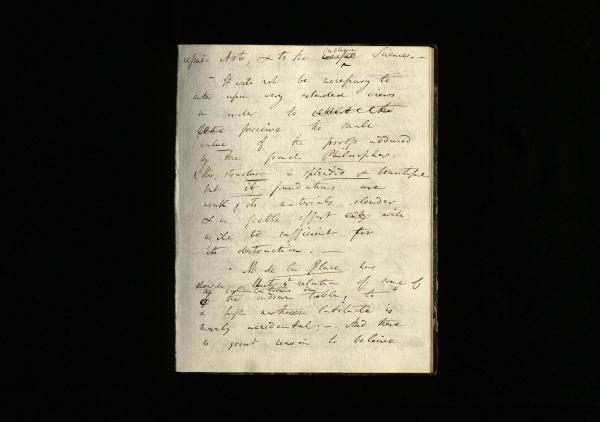 refined Arts, & to the useful sublime Sciences. —
— It will not be necessary to
enter upon very extended views
in order to
perceive the small
value of the proofs adduced
by the french Philosopher:
this structure is splendid & beautiful
but its foundations are
weak, its materials slender
& a feeble effort only will
be sufficient for
its destruction. —
— M. de la Place has
shewn that the relation of some of
the calculations in
the indian tables, to
a high northern latitude is
merely accidental; — And there
is great reason to believe